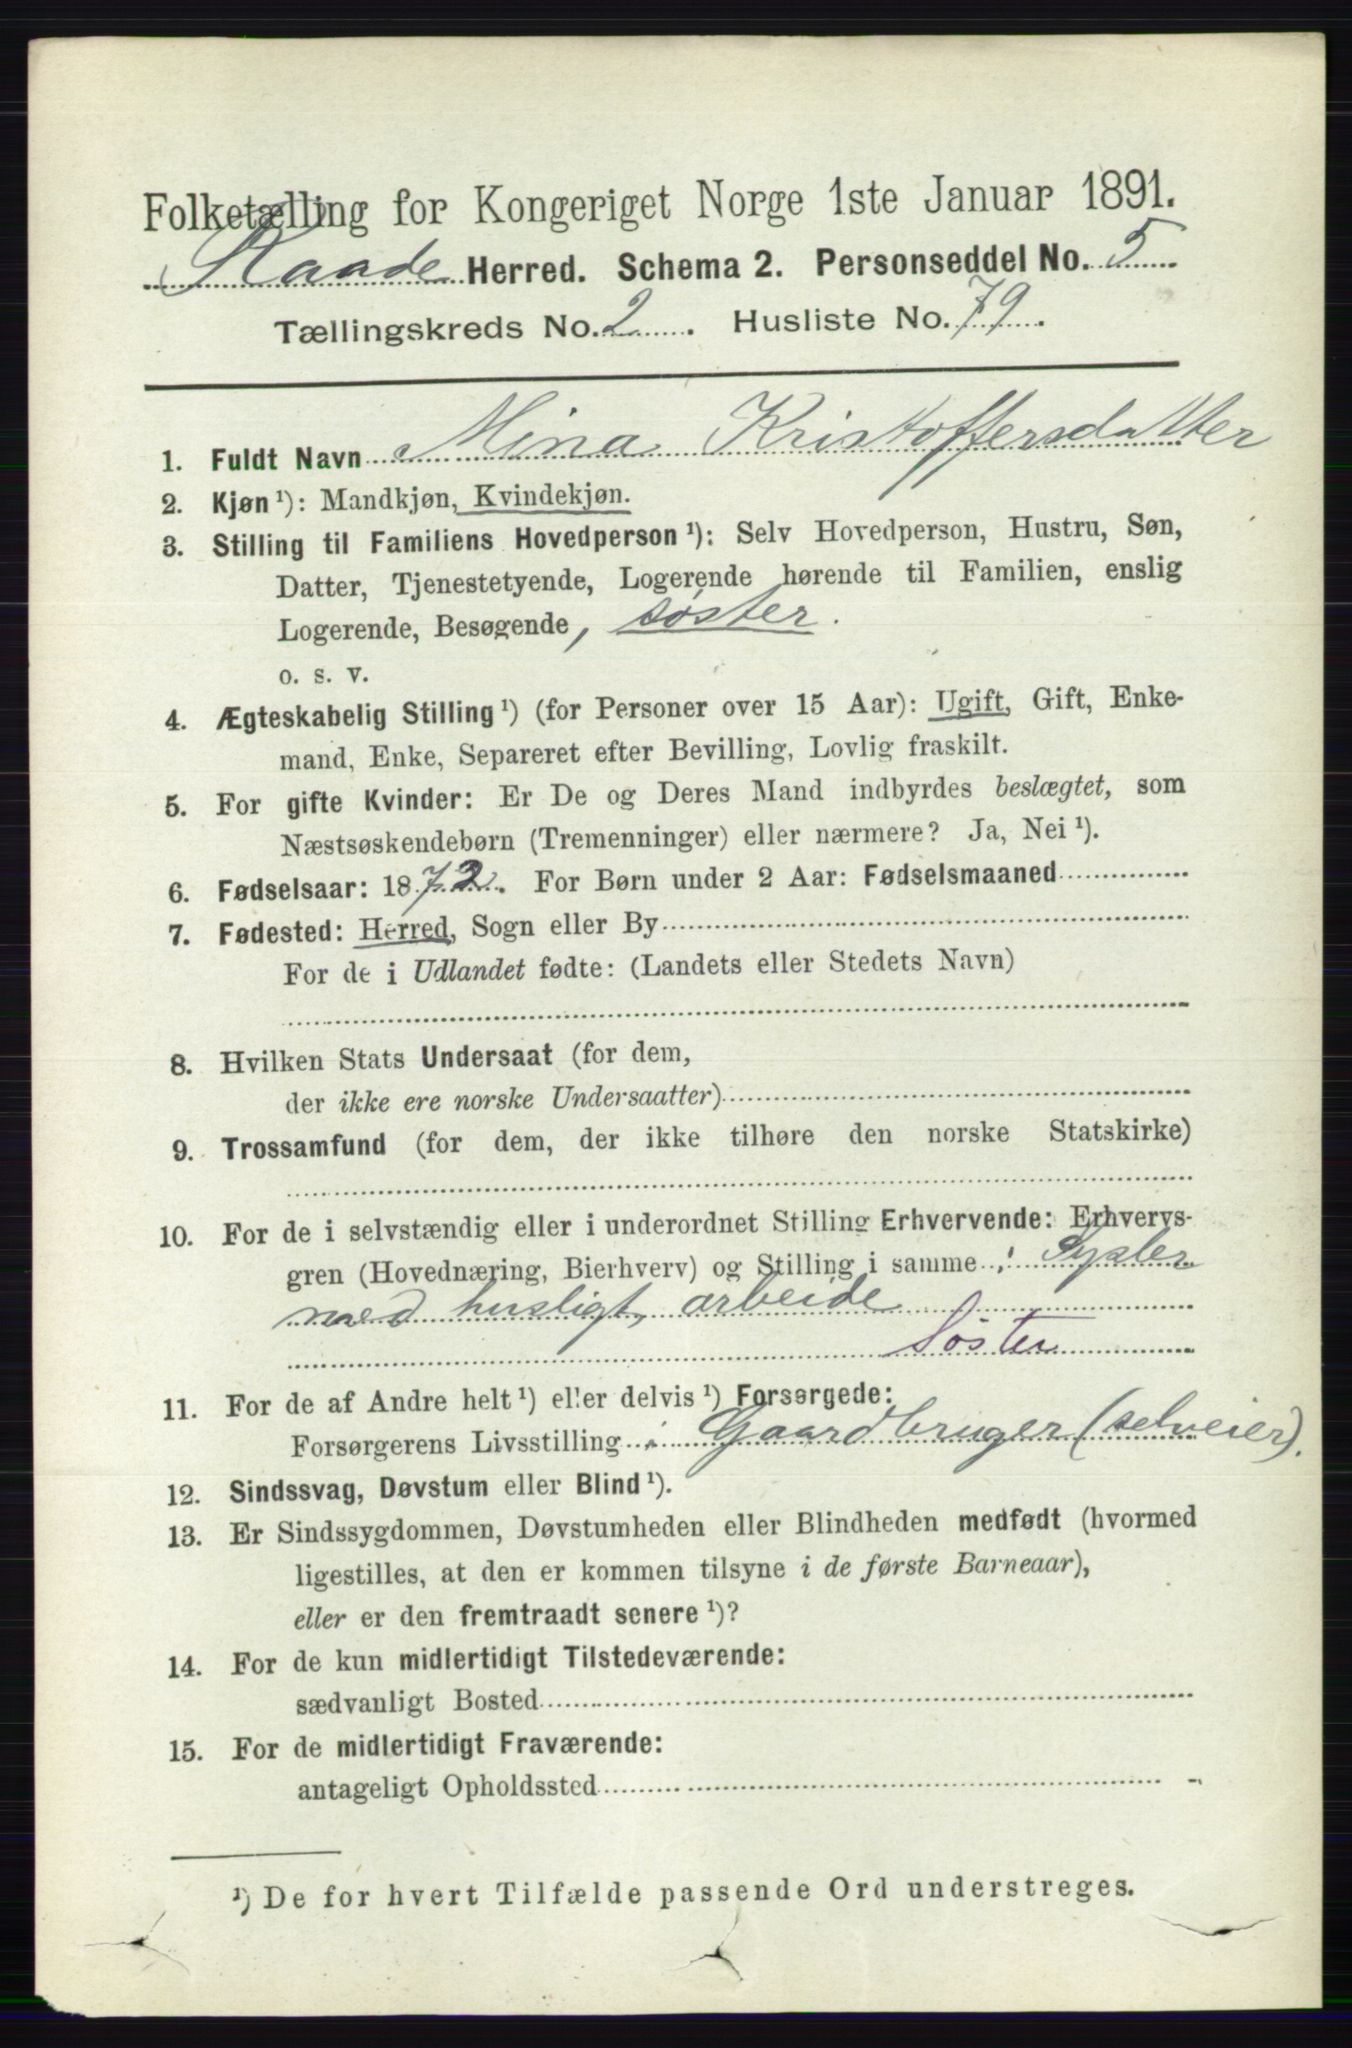 Folketælling for Kongeriget Norge 1ste Januar 1891.
Raade Herred. Schema 2. Personseddel No. 5
Tællingskreds No. 2. Husliste No. 79.
1. Fuldt Navn Mina Kristoffersdatter
2. Kjøn ¹): Mandkjøn, Kvindekjøn.
3. Stilling til Familiens Hovedperson ¹): Selv Hovedperson, Hustru, Søn,
Datter, Tjenestetyende, Logerende hørende til Familien, enslig
Logerende, Besøgende, søster.
o. s. v.
4. Ægteskabelig Stilling ¹) (for Personer over 15 Aar): Ugift, Gift, Enke-
mand, Enke, Separeret efter Bevilling, Lovlig fraskilt.
5. For gifte Kvinder: Er De og Deres Mand indbyrdes beslægtet, som
Næstsøskendebørn (Tremenninger) eller nærmere? Ja, Nei ¹).
6. Fødselsaar: 1872. For Børn under 2 Aar: Fødselsmaaned
7. Fødested: Herred, Sogn eller By
For de i Udlandet fødte: (Landets eller Stedets Navn)
8. Hvilken Stats Undersaat (for dem,
der ikke ere norske Undersaatter)
9. Trossamfund (for dem, der ikke tilhøre den norske Statskirke)
10. For de i selvstændig eller i underordnet Stilling Erhvervende: Erhvervs-
gren (Hovednæring, Bierhverv) og Stilling i samme : Sysler
med husligt arbeide
Søster
11. For de af Andre helt ¹) eller delvis ¹) Forsørgede:
Forsørgerens Livsstilling : Gaardbruger (selveier).
12. Sindssvag, Døvstum eller Blind ¹).
13. Er Sindssygdommen, Døvstumheden eller Blindheden medfødt (hvormed
ligestilles, at den er kommen tilsyne i de første Barneaar),
eller er den fremtraadt senere ¹)?
14. For de kun midlertidigt Tilstedeværende:
sædvanligt Bosted
15. For de midlertidigt Fraværende:
antageligt Opholdssted
¹) De for hvert Tilfælde passende Ord understreges.